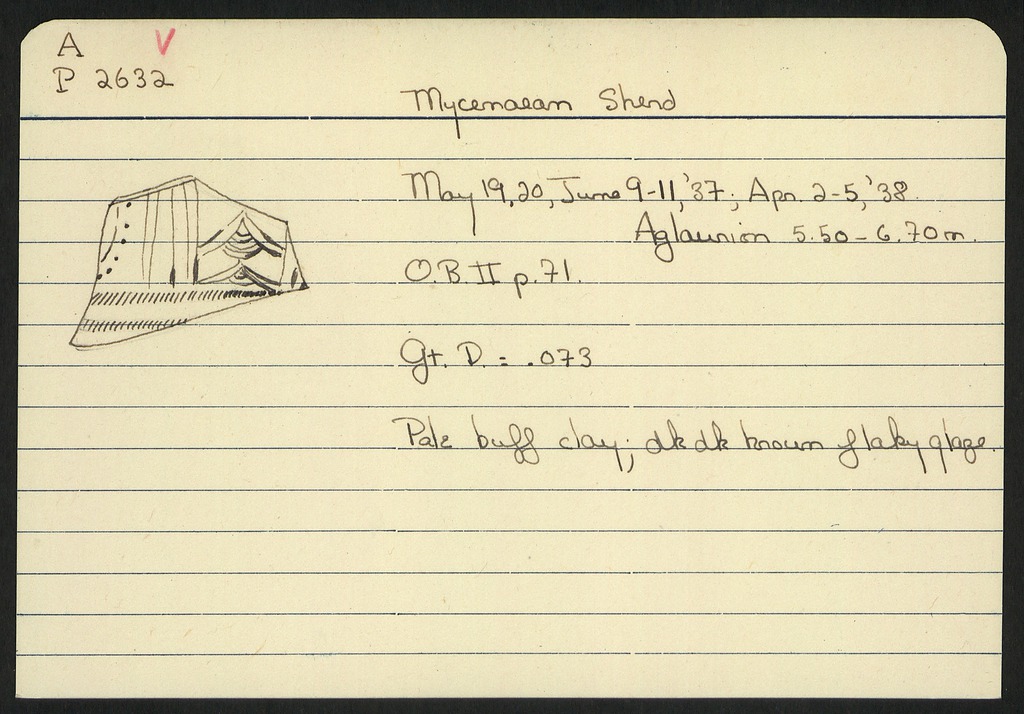 A V
P 2632
Mycenaean Sherd
May 19, 20, June 9-11, '37; Apr. 2-5, '38.
Aglaurion 5.50-6.70m.
O.B. II p. 71.
Gt. D. = .073
Pale buff clay; dk dk brown flaky glaze.